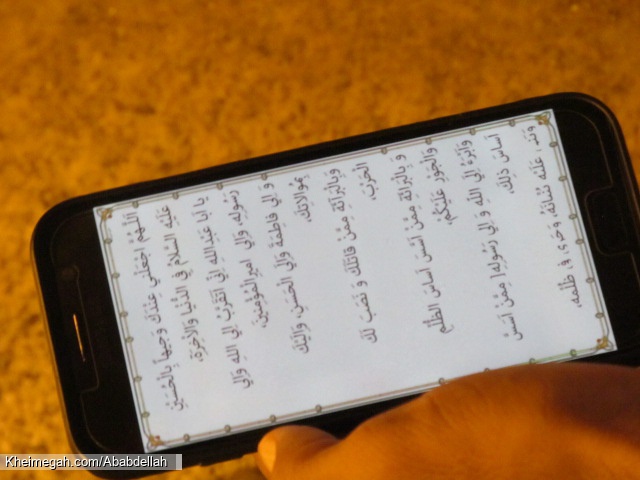 اَللّهُمَّ اجْعَلْني عِنْدَكَ وَجيهاً بِالْحُسَيْنِ
عَلَيْهِ السَّلامُ فِي الدُّنْيا وَالْاخِرَةِ،
يا اَبا عَبْدِاللهِ اِنّي اَتَقَرَّبُ اِلَي اللهِ وَاِلي
رَسُولِهِ، وَاِلي اميرِالْمُؤْمِنينَ،
وَ اِلي فاطِمَةَ وَاِلَي الْحَسَنِ، وَاِلَيْكَ
بِمُوالاتِكَ،
وَبِالْبَرائَةِ مِمَّنْ قاتَلَكَ وَ نَصَبَ لَكَ
الْحَرْبَ،
وَ بِالْبَرائَةِ مِمَّنْ اَسَّسَ اَساسَ الظُّلْمِ
وَالْجَوْرِ عَلَيْكُمْ،
وَاَبْرَءُ اِلَي اللهِ وَ اِلي رَسُولِهِ، مِمَّنْ اَسَسَّ
اَساسَ ذلِكَ،
وَبَني عَلَيْهِ بُنْيانَهُ، وَجَري في ظُلْمِهِ،
Kheimegah.com/Ababdellah